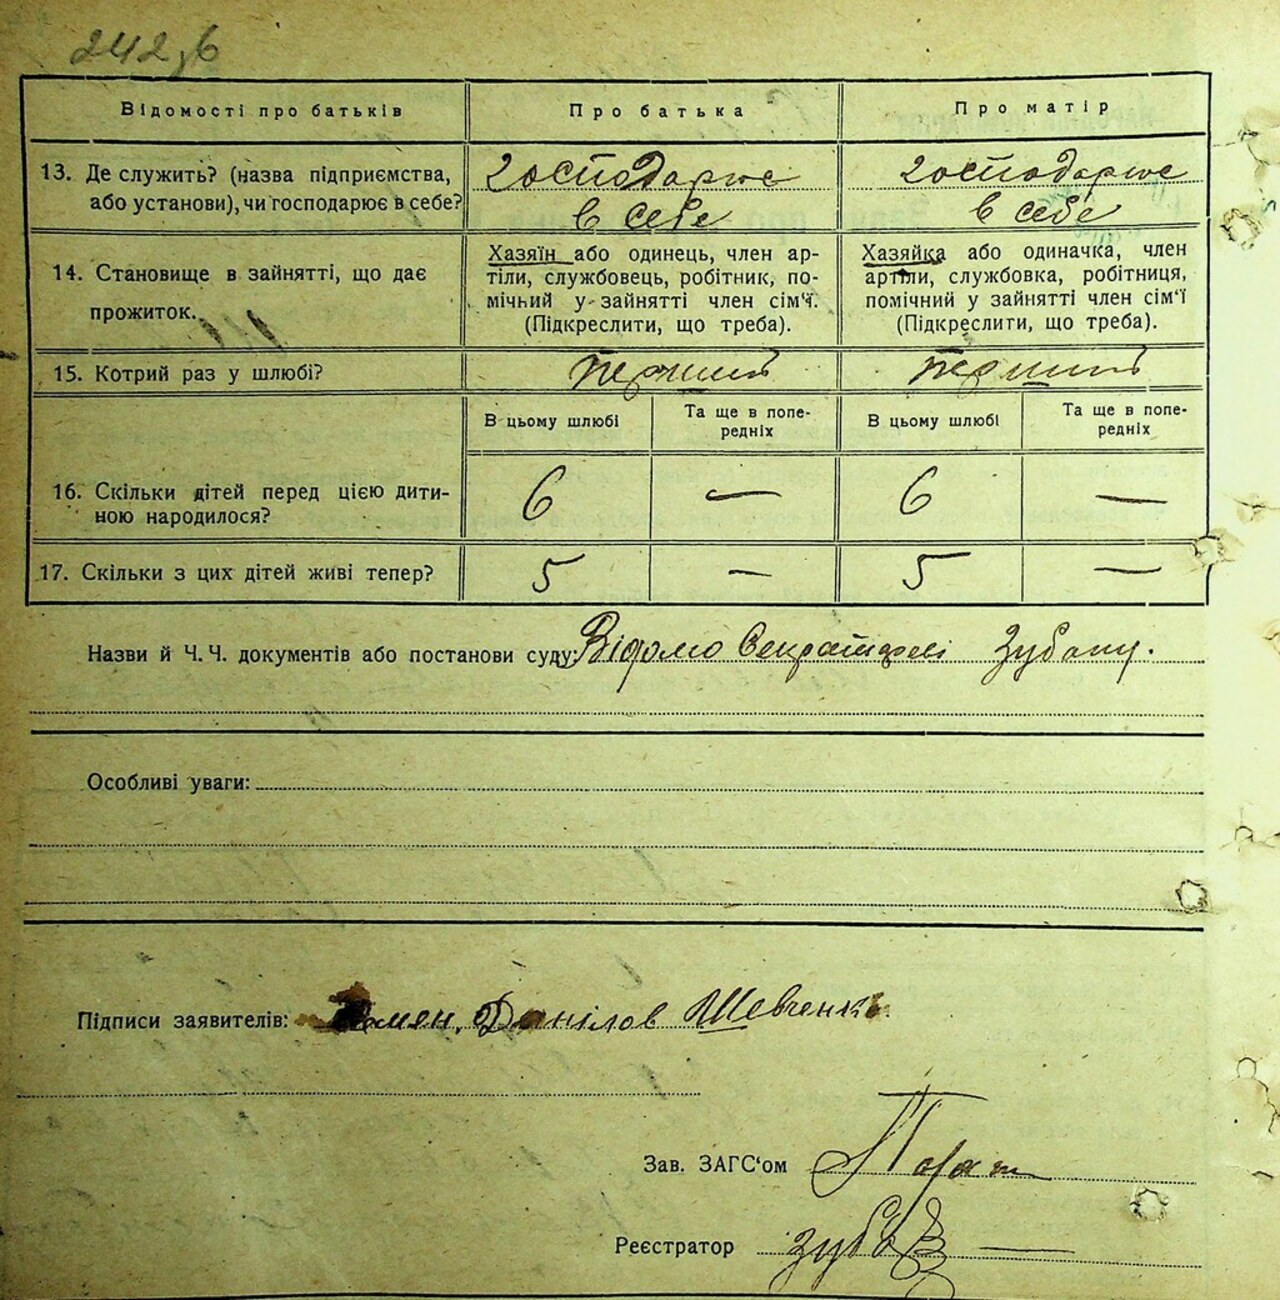 242 зв
Відомості про батьків Про батька Про матір
13. Де служить? (назва підприємства, або установи), чи господарює в себе?
господарює в себе
господарює в себе
14. Становище в зайнятті, що дає прожиток.
Хазяїн або одинець, член ар-
тіли, службовець, робітник, по-
мічний у зайнятті член сім'ї.
(Підкреслити, що треба).
Хазяйка або одиначка, член
артіли, службовка, робітниця,
помічний у зайнятті член сім'ї
(Підкреслити, що треба).
15. Котрий раз у шлюбі? перший перший
В цьому шлюбі Та ще в попе-
редніх В цьому шлюбі Та ще в попе-
редніх
16. Скільки дітей перед цією дити-
ною народилося? 6 — 6 —
17. Скільки з цих дітей живі тепер? 5 — 5 —
Назви й Ч. Ч. документів або постанови суду: Відомо Секретареві Зубану.
Особливі уваги:
Підписи заявителів: Данілов Шевченко
Зав. ЗАГС'ом
Реєстратор